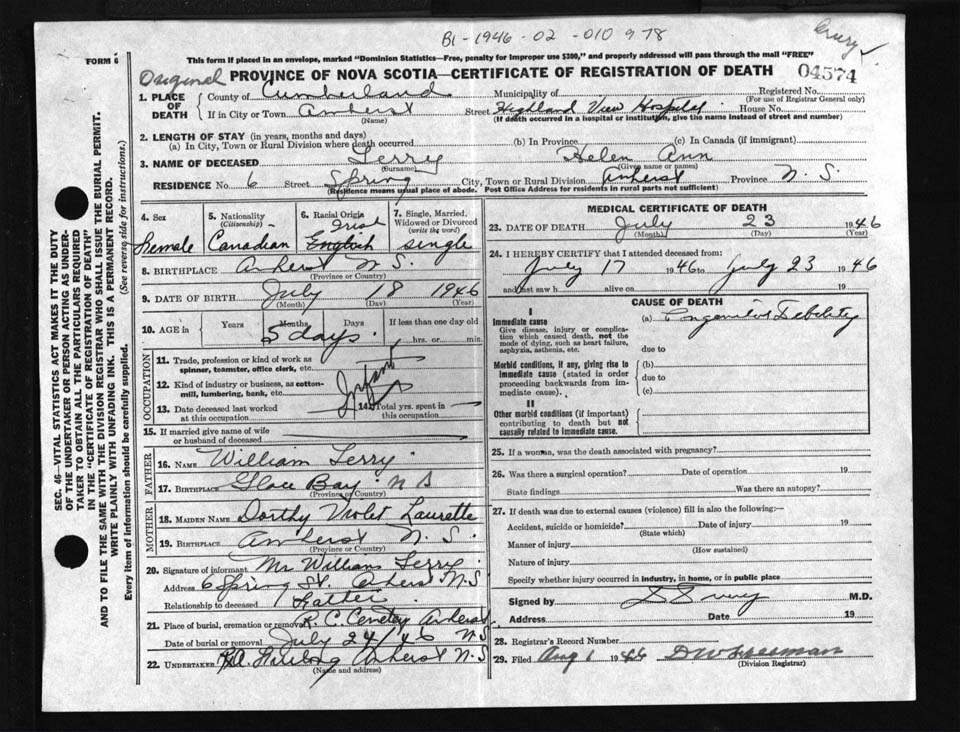 B1-1946-02-010978
FORM 6
This form if placed in an envelope, marked "Dominion Statistics—Free, penalty for improper use $300," and properly addressed will pass through the mail "FREE"
Original
PROVINCE OF NOVA SCOTIA—CERTIFICATE OF REGISTRATION OF DEATH
04574
1. PLACE OF DEATH
County of Cumberland Municipality of Registered No.
(For use of Registrar General only)
If in City or Town Amherst Street Highland View Hospital House No.
(Name) (If death occurred in a hospital or institution, give the name instead of street and number)
2. LENGTH OF STAY (in years, months and days)
(a) In City, Town or Rural Division where death occurred (b) In Province (c) In Canada (if immigrant)
3. NAME OF DECEASED Terry Helen Ann
(Surname) (Given name or names)
RESIDENCE No. 6 Street Spring City, Town or Rural Division Amherst Province N.S.
(Residence means usual place of abode. Post Office Address for residents in rural parts not sufficient)
4. Sex Female
5. Nationality (Citizenship) Canadian
6. Racial Origin Irish English
7. Single, Married, Widowed or Divorced (write the word) single
8. BIRTHPLACE Amherst N.S.
(Province or Country)
9. DATE OF BIRTH July 18 1946
(Month) (Day) (Year)
10. AGE in Years Months Days If less than one day old
5 days hrs. or min.
OCCUPATION
11. Trade, profession or kind of work as spinner, teamster, office clerk, etc.
12. Kind of industry or business, as cotton-mill, lumbering, bank, etc.
Infant
13. Date deceased last worked at this occupation
14. Total yrs. spent in this occupation
15. If married give name of wife or husband of deceased
FATHER
16. NAME William Terry
17. BIRTHPLACE Glace Bay N S
(Province or Country)
MOTHER
18. MAIDEN NAME Dorthy Violet Laurette
19. BIRTHPLACE Amherst N.S.
(Province or Country)
20. Signature of informant Mr William Terry
Address 6 Spring St. Amherst N.S
Relationship to deceased Father
21. Place of burial, cremation or removal R.C. Cemetery Amherst
Date of burial or removal July 24/46 N S
22. UNDERTAKER Amherst N.S
(Name and address)
MEDICAL CERTIFICATE OF DEATH
23. DATE OF DEATH July 23 1946
(Month) (Day) (Year)
24. I HEREBY CERTIFY that I attended deceased from:
July 17 1946 to July 23 1946
and last saw h alive on 19
CAUSE OF DEATH
I
Immediate cause (a) Congenital Debility
Give disease, injury or complication which caused death, not the mode of dying, such as heart failure, asphyxia, asthenia, etc.
due to
Morbid conditions, if any, giving rise to immediate cause (stated in order proceeding backwards from immediate cause).
(b)
due to
(c)
II
Other morbid conditions (if important) contributing to death but not causally related to immediate cause.
25. If a woman, was the death associated with pregnancy?
26. Was there a surgical operation? Date of operation 19
State findings Was there an autopsy?
27. If death was due to external causes (violence) fill in also the following:—
Accident, suicide or homicide? Date of injury 19
(State which)
Manner of injury
(How sustained)
Nature of injury
Specify whether injury occurred in industry, in home, or in public place
Signed by M.D.
Address Date 19
28. Registrar's Record Number
29. Filed Aug 1 1946
(Division Registrar)
SEC. 46—VITAL STATISTICS ACT MAKES IT THE DUTY
OF THE UNDERTAKER OR PERSON ACTING AS UNDER-
TAKER TO OBTAIN ALL THE PARTICULARS REQUIRED
IN THE "CERTIFICATE OF REGISTRATION OF DEATH"
AND TO FILE THE SAME WITH THE DIVISION REGISTRAR WHO SHALL ISSUE THE BURIAL PERMIT.
WRITE PLAINLY WITH UNFADING INK. THIS IS A PERMANENT RECORD.
Every item of information should be carefully supplied. (See reverse side for instructions.)